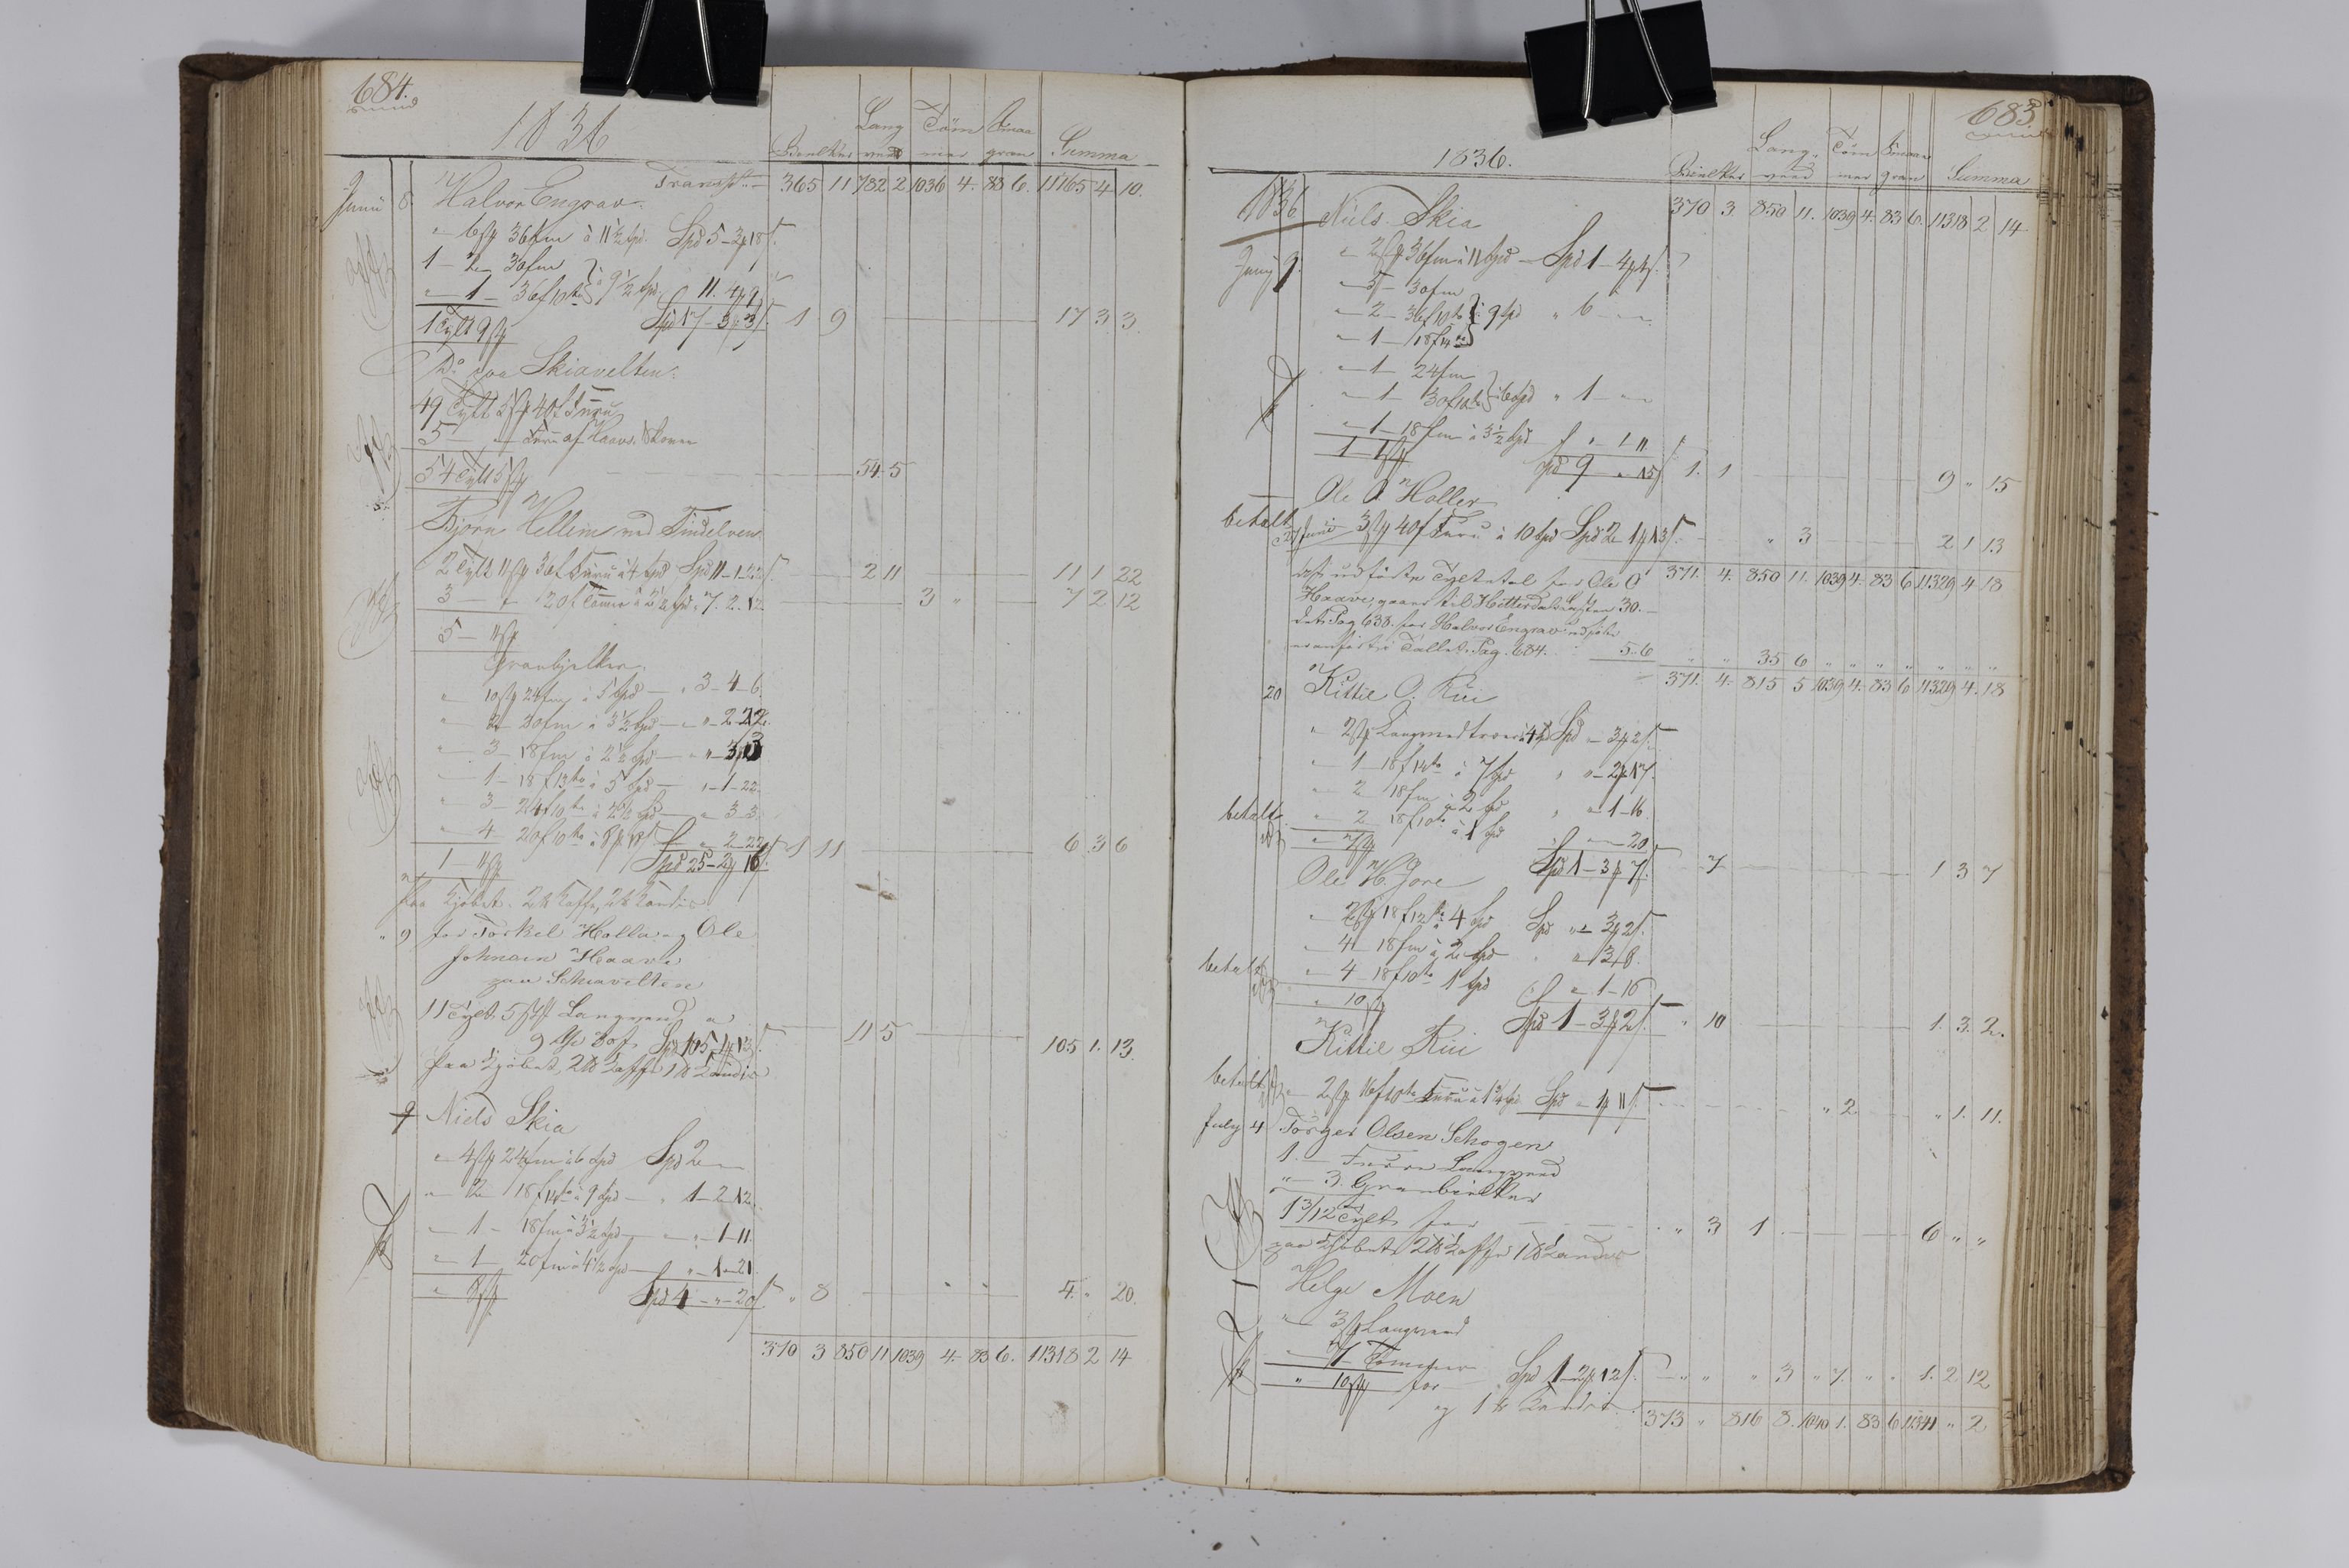 684.
1836
Bielker Lang ved Töm mer Smaa gran Summa
Transpt. 365 11 782 2 1036 4. 83 6. 11165 4 10.
Junii 8 Halvor Engrav.
" 6 st 36 fm à 11½ Spd. Spd 5-3#18s.
1 - 2 30 fm
" 1 - 36 f 10 to à 9½ Spd. 11. 4 # 9
1 Tylt 9 st Spd 17-3#3s. 1 9 17 3 3.
Do paa Skiavelten.
49 Tylt 5 st 40 f Furu
5 - " Furu af Haave Skoven
54 Tylt 5 st 54 5
Bjørn Hellem ved Tindelven.
2 Tylt 11 st 30 f Furu à 4 Spd Spd 11-1-22s. 2 11 11 1 22
3 - " 20 f Tömer à 2½ Spd " 7. 2. 12 3 " 7 2 12
5 - 11 st
Granbjelker.
" 10 st 24 fm à 5 Spd - " 3-4-6.
" 2 - 30 fm à 3½ Spd - " - 2-22.
" 3 - 18 fm à 2½ Spd - " - 3
" 1 - 18 f 13 to à 5 Spd - " - 1-22
" 3 - 24 f 10 to à 2½ Spd - " 3-3.
" 4 - 20 f 10 to " 2-22
1 - 11 st Spd 25-2#16. 1 11 6 3 6
Paa Kjöbet. 2 ℔ Kaffe, 2 ℔ Kandis
" 9 for Torkel Holla og Ole
Johnsen Haave
paa Schiavelten
11 Tylt 5 st Langved a
9 30 f. Spd 105-1#13s. 11 5 105 1. 13.
paa Kjöbet, 2 ℔ Kaffe 1 ℔ Kandis
9 Niels Skia
" 4 st 24 fm à 6 Spd Spd 2 "
" 2 - 18 f 14 to à 9 Spd - " 1-2-12.
" 1 - 18 fm à 3½ Spd - " - 1-11.
" 1 - 20 fm à 4½ Spd - " - 1-21.
" 8 st Spd 4 - " - 20s. " 8 4. " 20.
370 3 850 11 1039 4. 83 6. 11318 2 14
683
1836.
Bielker Lang ved Töm mer Smaa gran Summa
1836 Niels Skia 370 3. 850 11. 1039 4. 83 6. 11318 2 14
Juny 9. " 2 st 36 fm à 11 Spd - Spd 1-4#4s.
" 5 - 30 fm
" 2 - 36 f 10 to à 9 Spd " 6 - "
" 1 - 18 f 14 to
" 1 24 fm
" 1 - 30 f 10 to à 6 Spd " 1 - "
" 1 - 18 fm à 3½ Spd " " 1 11
1 - 1 st Spd 9 " 15s. 1. 1 9 " 15
Ole Holler
betalt 3 st 40 f Furu à 10 Spd Spd 2 - 1#13s. " 3 2 1 13
udførte Tyltetal for Ole O 371. 4. 850 11. 1039 4. 83 6 11329 4 18
Haave, gaaer til Hitterdals 30. -
Pag. 638. for Halvor Engrav udført
Tallet Pag. 684. 5..6 " " 35 6 " " " " " " "
371. 4. 815 5 1039 4. 83 6 11329 4. 18
20 Kittil O. Rui
" 2 st Langved Spd " 3#2s.
" 1 - 18 f 14 to à 7 Spd " " - 2#17.
" 2 18 fm à 2 Spd " " 1-16
betalt " 2 18 f 10 to à 1 Spd " - 20
" 7 st Spd 1-3#7s. 7 1 3 7
Ole H. Jore
" 2 st 18 f 12 to 4 Spd Spd " 3#2s.
" 4 - 18 fm à 2 Spd " 3#8.
betalt " 4 - 18 f 10 to 1 Spd " 1-16
" 10 st Spd 1-3#2s. " 10 1. 3. 2.
Kittil Rui
betalt " 2 st 16 f 10 to Furu à 1¾ Spd Spd " 1#11s. " 2. " 1. 11.
July 4 Törger Olsen Schogen
1. - Furu Langved
" - 3. Granbielker
1 3/12 Tylt for " 3 1 6 " "
paa Kjöbet 2 ℔ Kaffe 1 ℔ Kandis
Helge Moen
" 3 st Langved
" 7 - Tömmer
" 10 st for Spd 1-2#12s. " " " 3 " 7. " " 1. 2. 12
og 1 ℔ Kandis
373 " 816 8. 1040 1. 83 6 11341 " 2